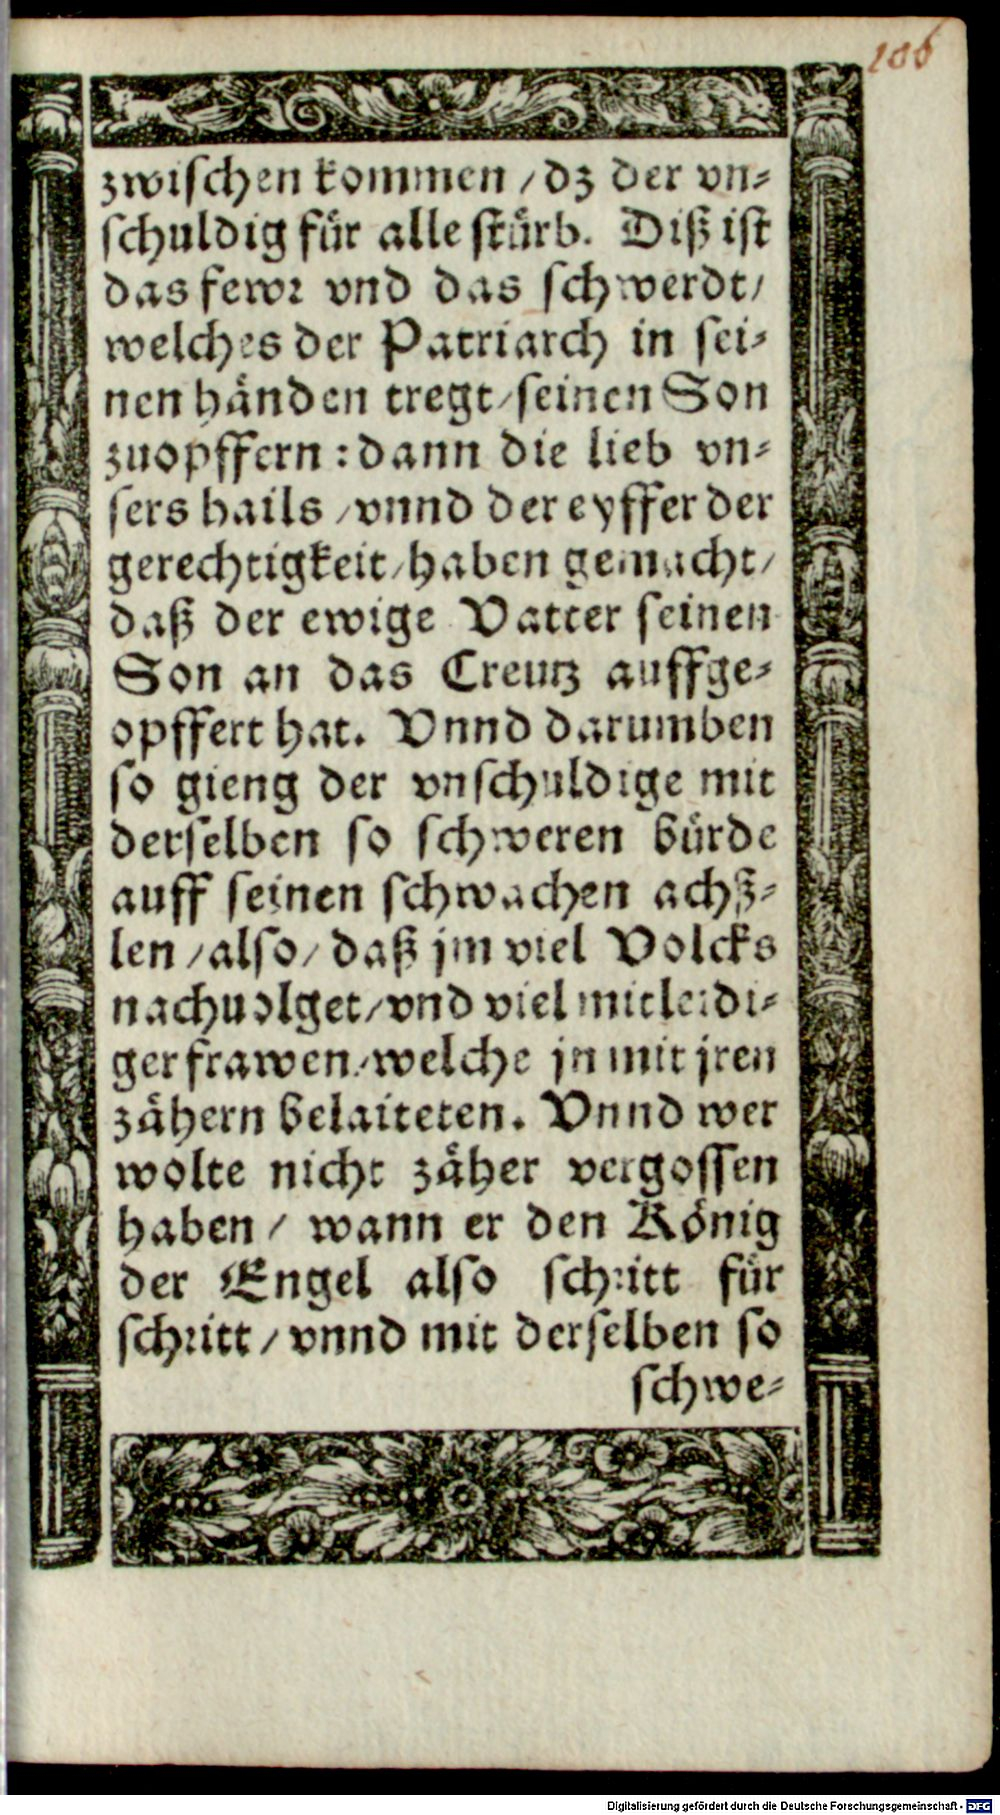 106
zwischen kommen / dz der vn⸗
schuldig für alle stürb. Diß ist
das fewr vnd das schwerdt /
welches der Patriarch in sei⸗
nen händen tregt / seinen Son
zuopffern : dann die lieb vn⸗
sers hails / vnnd der eyffer der
gerechtigkeit / haben gemacht /
daß der ewige Vatter seinen
Son an das Creutz auffge⸗
opffert hat. Vnnd darumben
so gieng der vnschuldige mit
derselben so schweren bürde
auff seinen schwachen achß⸗
len / also / daß jm viel Volcks
nachuolget / vnd viel mitleidi⸗
ger frawen / welche jn mit jren
zähern belaiteten. Vnnd wer
wolte nicht zäher vergossen
haben / wann er den König
der Engel also schritt für
schritt / vnnd mit derselben so
schwe⸗
Digitalisierung gefördert durch die Deutsche Forschungsgemeinschaft - DFG